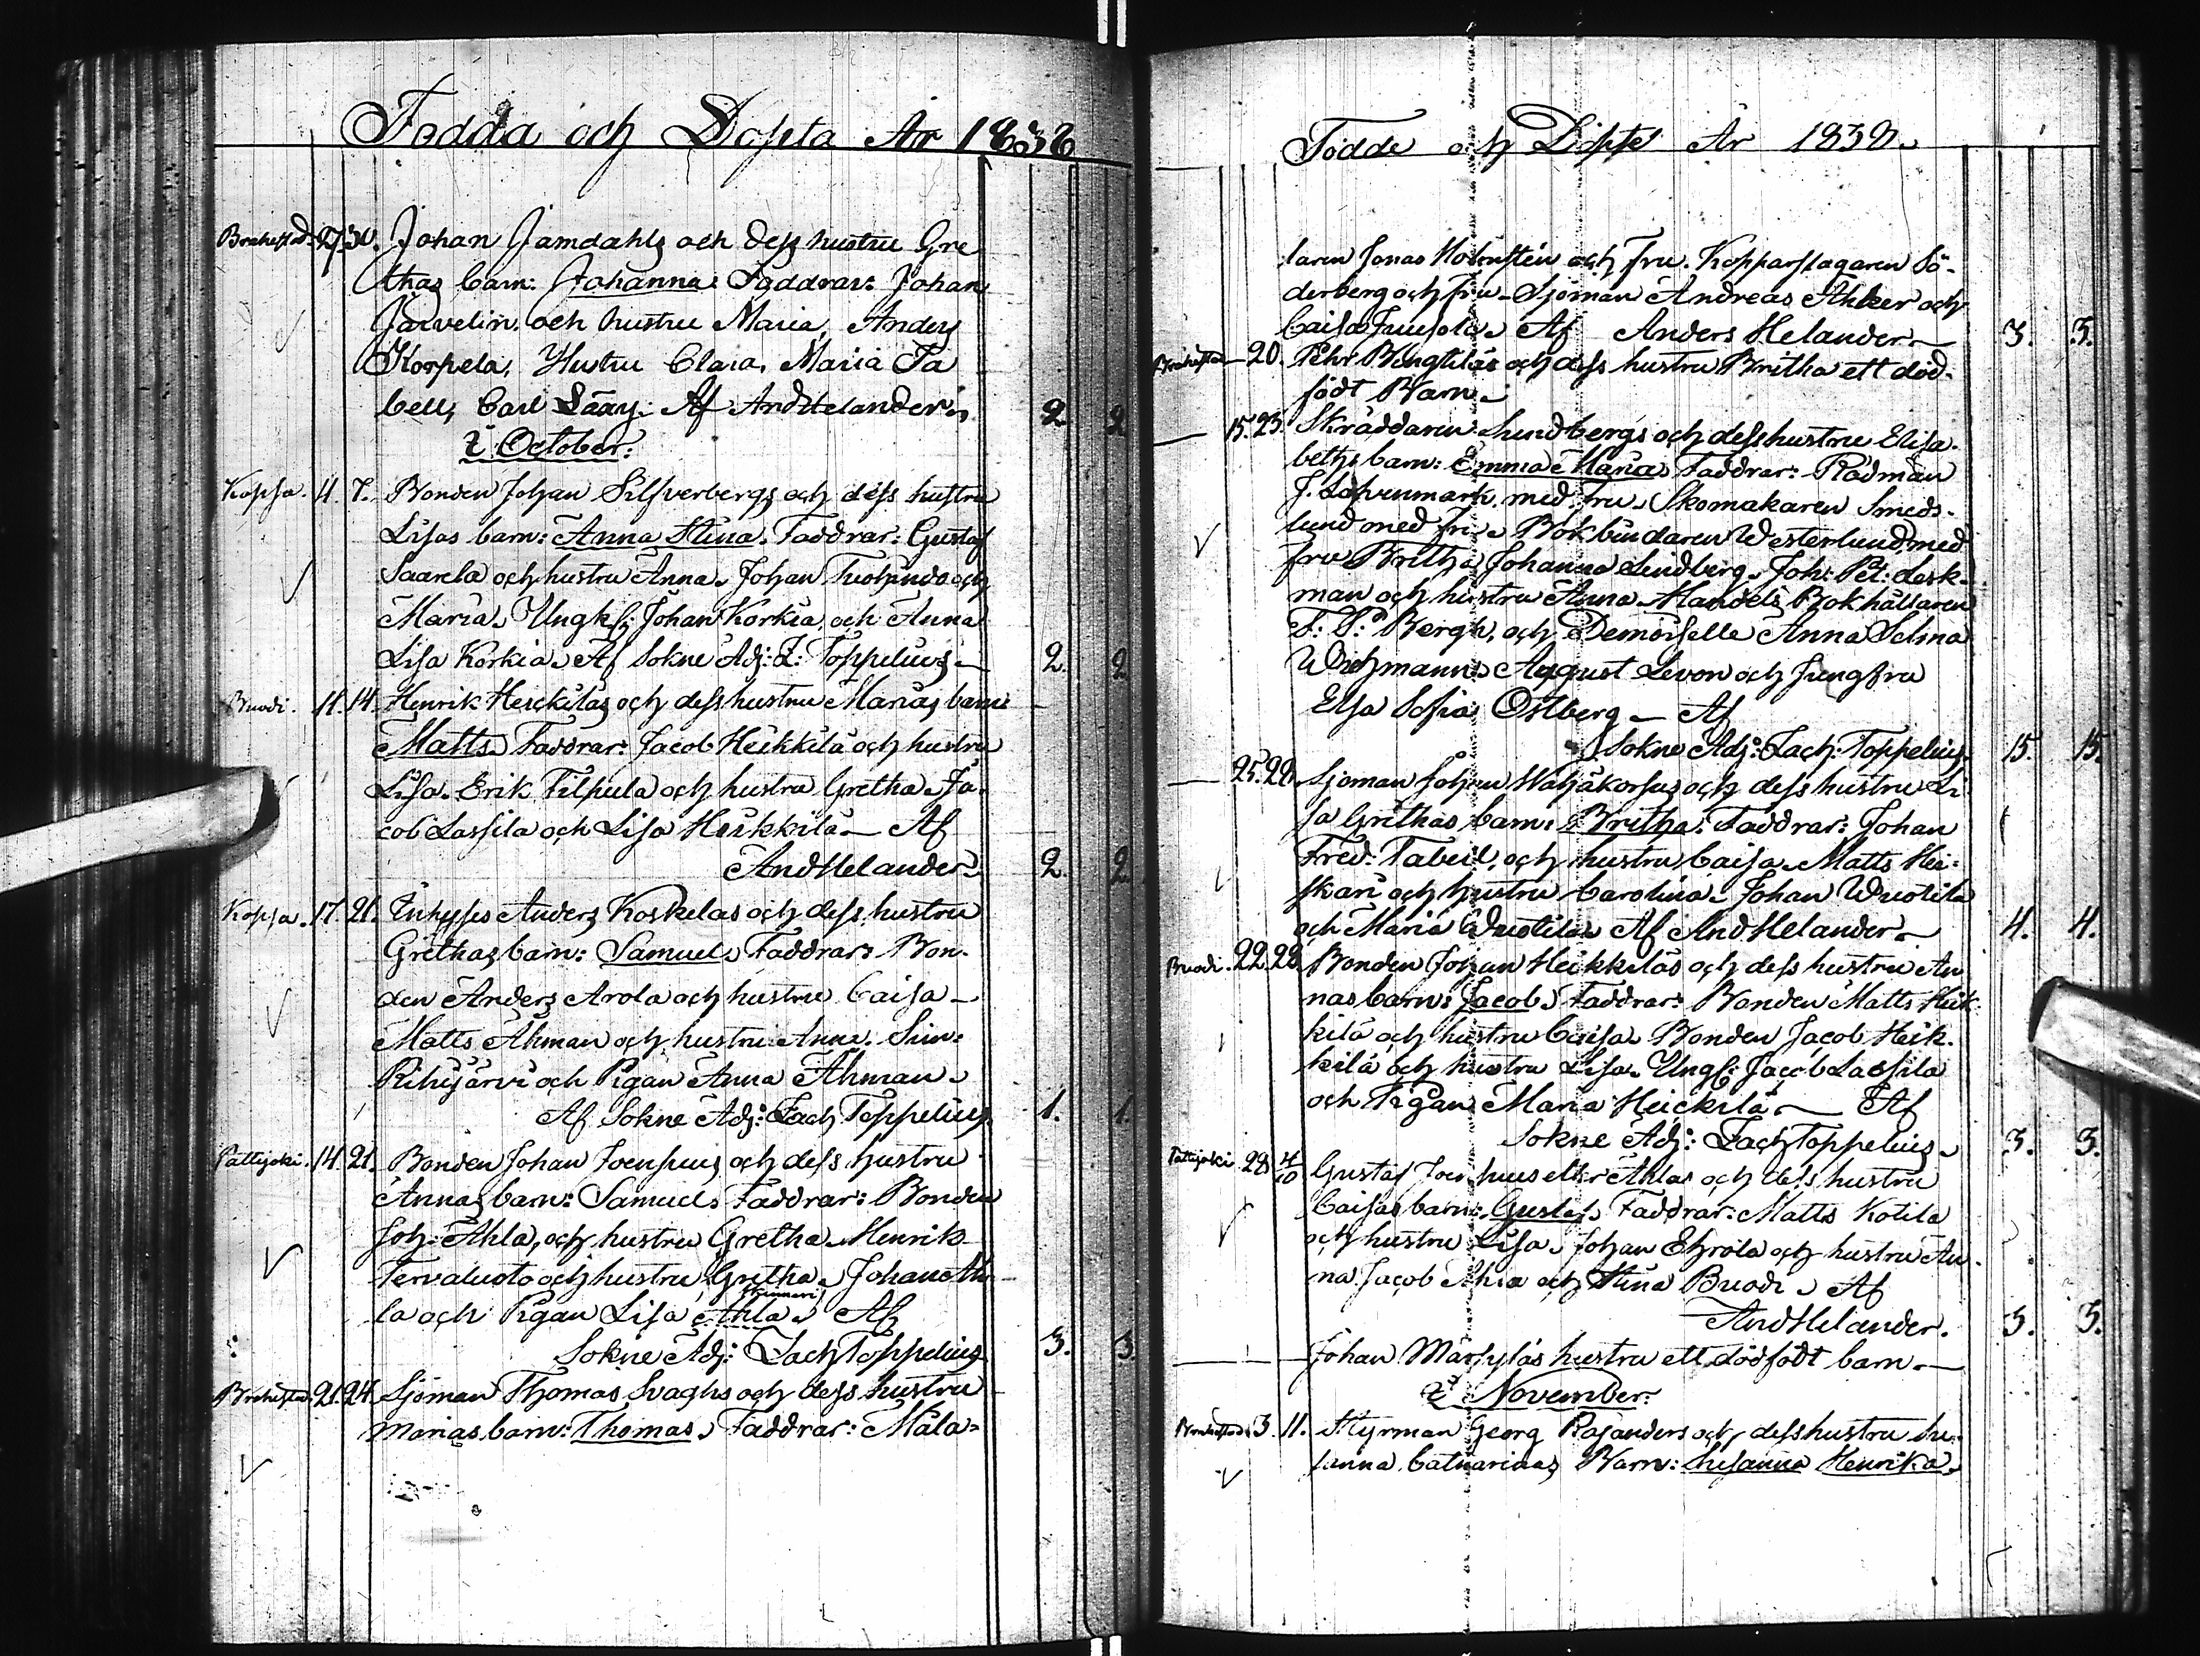 Födda och Döpta År 1838
Brahestad. 27. 30. Johan Jamdahls och dess hustru Gre
thas barn: Johanna Faddrar: Johan
Järvelin och hustru Maria, Anders
Korpela, Hustru Clara, Maria Ta
bell, Carl Lääy. Af And Helander. 2. 2
i October.
Kopsa. 4. 7. Bonden Johan Silfverbergs och dess hustru
Lisas barn: Anna Stina. Faddrar: Gustaf
Saarela och hustru Anna. Johan och
Maria. Ungk: Johan Korkia och Anna
Lisa Korkia. Af Sokne Adj: Z: Toppelius 2. 2
Buodi. 11. 14. Henrik Heickilas och dess hustru Marias barn
Matts. Faddrar: Jacob Heikkilä och hustru
Lisa. Erik Filpula och hustru Gretha. Ja-
cob Lassila och Lisa Heikkilä. Af
And Helander. 2. 2
Kopsa. 17. 21. Inhyses Anders Koskelas och dess hustru
Grethas barn: Samuel. Faddrar: Bon-
den Anders Arola och hustru Caisa
Matts Åhman och hustru Anna. Sim:
Rihijärvi och Pigan Anna Åhman.
Af Sokne Adj: Zach Toppelius. 1. 1.
Pattijoki. 14. 21. Bonden Johan Joensuus och dess hustru
Annas barn: Samuel. Faddrar: Bonden
Joh: Ahla, och hustru Gretha. Henrik
Tervaluoto och hustru Gretha. Johan Ah-
la och Pigan Lisa Ahla. Af
Sokne Adj: Zach Toppelius 3. 3
Brahestad. 21. 24. Sjöman Thomas Svaghs och dess hustru
Marias barn: Thomas. Faddrar: Måla-
Födde och Döpte År 1838.
laren Jonas Holmstén och Fru. Kopparslagaren Sö-
derberg och fru. Sjöman Andreas Åhker och
Caisa Juusola. Af Anders Helander. 3. 3.
Brahestad 20. Pehr Bengtilas och dess hustru Britha ett död-
födt Barn.
15. 23. Skräddaren Sundbergs och dess hustru Elisa-
beths barn: Emma Maria Faddrar: Rådman
J. Löfvenmark med Fru. Skomakaren Smeds-
lund med Fru. Bokbindaren Westerlund med
fru Britha Johanna Lindberg. Joh: Pet: Lesk-
man och hustru Anna. Handels Bokhållaren
Bergh, och Demoiselle Anna Selma
August Levon och Jungfru
Elsa Sofia Ostberg. Af
Sokne Adj: Zach: Toppelius. 15. 15.
25. 28. Sjöman Johan Watjäkorpus och dess hustru Li
sa Grethas barn: Britha. Faddrar: Johan
Fred: Tabell, och hustru Caisa. Matts Hei-
skari och hustru Carolina. Johan Wuotila
och Maria Wuotila. Af And Helander. 4. 4.
Buodi. 22. 28 Bonden Johan Heikkiläs och dess hustru An
nas barn: Jacob. Faddrar: Bonden Matts Heik-
kilä och hustru Caisa. Bonden Jacob Heik-
kilä och hustru Lisa. Ungk: Jacob Lassila
och Pigan Maria Heickilä. Af
Sokne Adj: Zach Toppelius. 3. 3.
Pattijoki 28 4/10 Gustaf Joensuus eller Ahlas och dess hustru
Caisas barn: Gustaf. Faddrar: Matts Kotila
och hustru Lisa. Johan Ehrola och hustru An-
na. Jacob Ahla och Stina Buodi. Af
And Helander. 3. 3.
Johan Märsyläs hustru ett dödfödt barn.
i November.
Brahestad 3. 11. Styrman Georg Rajanders och dess hustru Su-
sanna Catharinas Barn: Susanna Henrika.